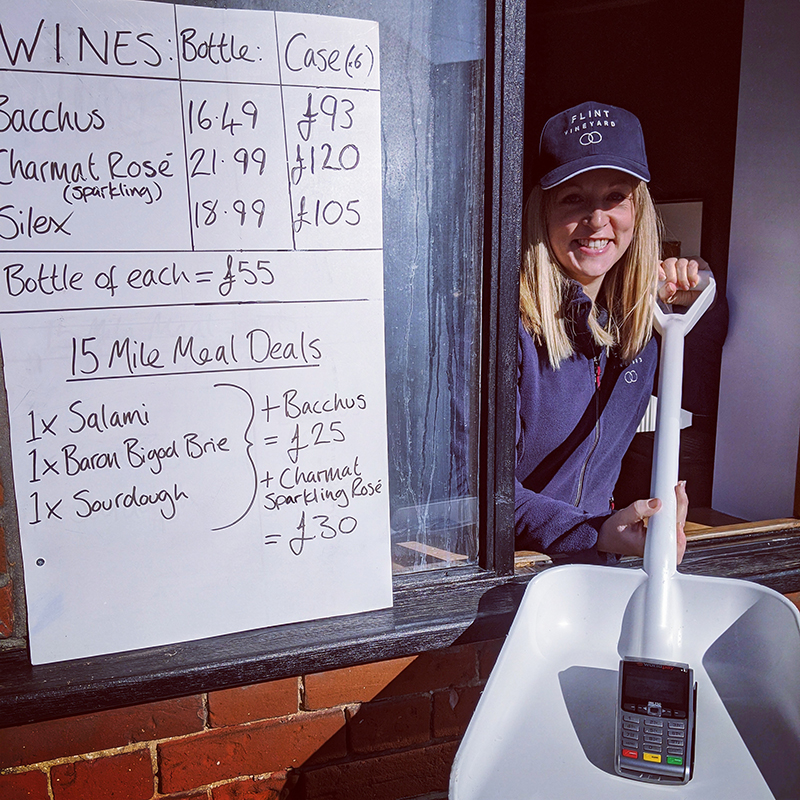 WINES: Bottle: Case (x6)
Bacchus 16.49 £93
Charmat Rosé 21.99 £120
(sparkling)
Silex 18.99 £105
Bottle of each = £55
15 Mile Meal Deals
1x Salami
1x Baron Bigod Brie
1x Sourdough
+ Bacchus
= £25
+ Charmat
Sparkling Rosé
= £30
FLINT
VINEYARD